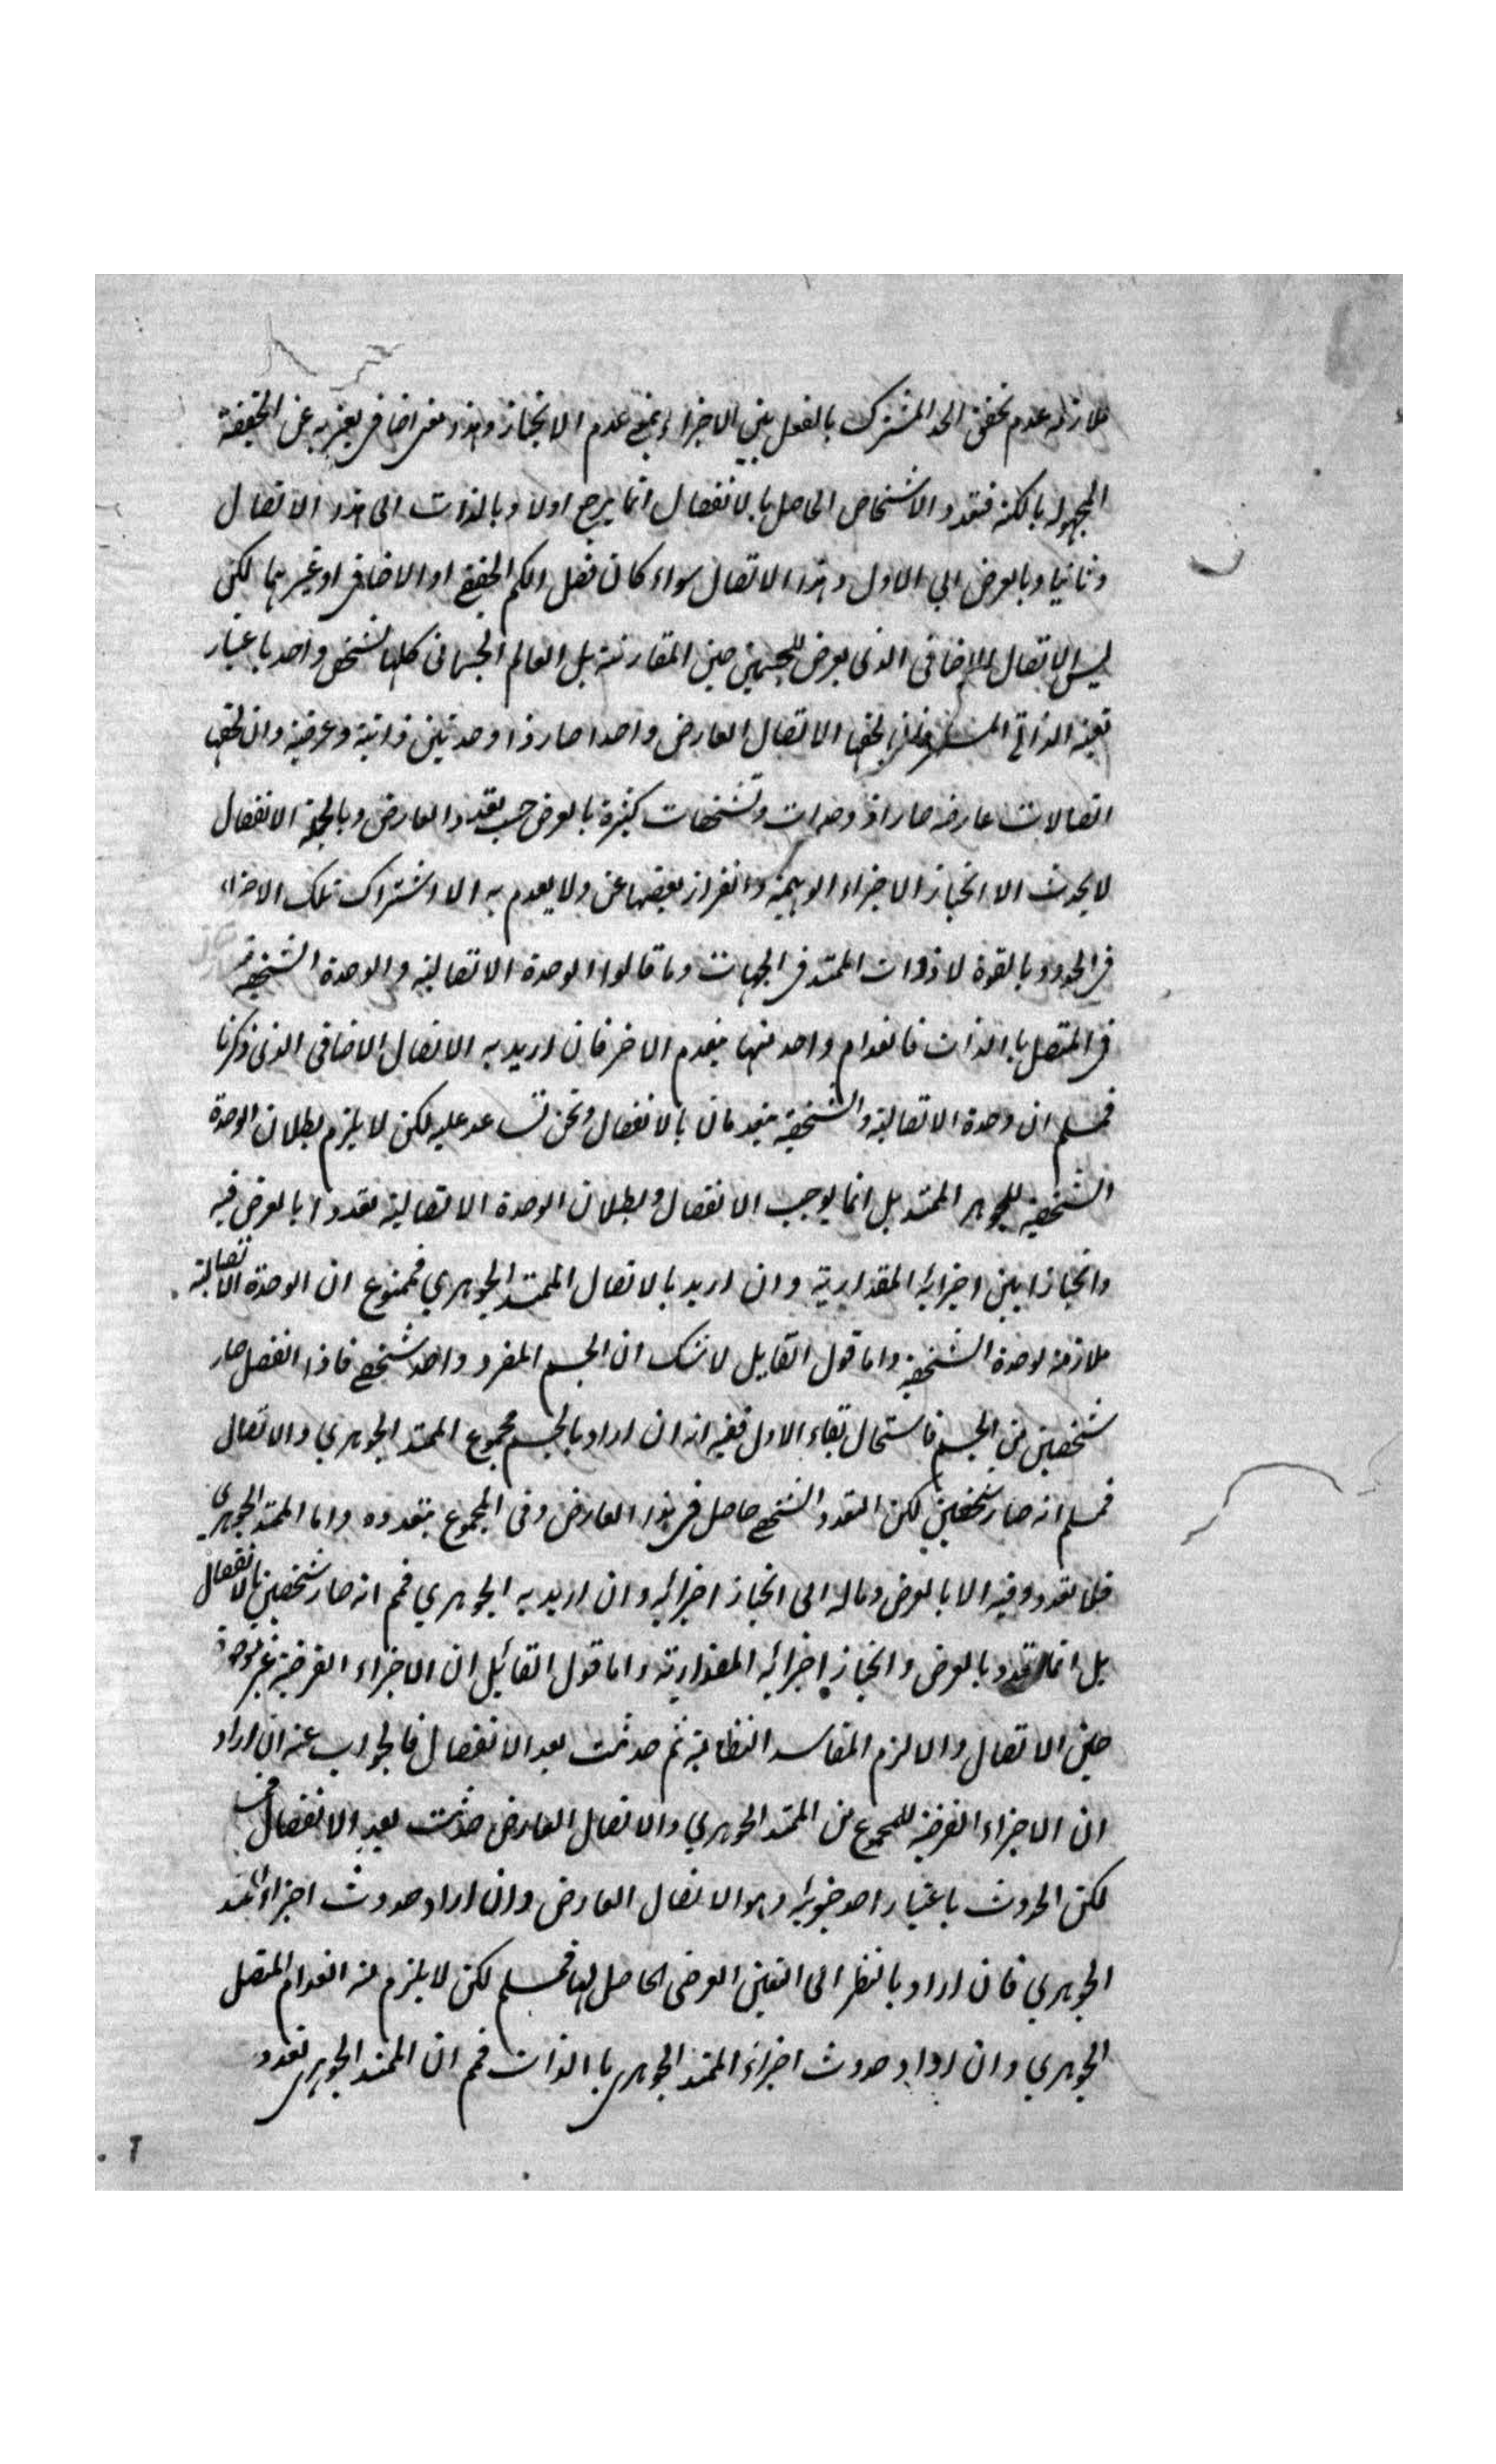 ملازمه عدم تحقق الحد المشترك بالفعل بين الاجزاء بمعنى عدم الانحياز وهذا معنى اضافى يعبر به عن الحقيقة
المجهولة بالكنه فتعدد الاشخاص الحاصل بالانفصال انما يرجع اولا وبالذات الى هذا الاتصال
وثانيا وبالعرض الى الاول وهذا الاتصال سواء كان فصل الكم الحقيقى او الاضافى او غيرهما لكن
ليس الاتصال الاضافى الذى يعرض للجسمين حين المقارنة بل العالم الجسمانى كلها شخص واحد باعتبار
تعينه الذاتى المستمر فان لحقها الاتصال العارض واحدا صار ذا وحدتين ذاتية وعرضية وان لحقها
اتصالات عارضه صار ذو وحدات وتشخصات كثيرة بالعرض حسب تعدد العارض وبالجملة الانفصال
لا يحدث الا انحياز الاجزاء الوهمية وانفراز بعضها عن ولا يعدم به الا اشتراك تلك الاجزاء
فى الحدود بالقوة لا ذوات الممتد فى الجهات وما قالوا الوحدة الاتصالية والوحدة الشخصية
فى المتصل بالذات فانعدام واحد منها ينعدم الاخر فان اريد به الاتصال الاضافى الذى ذكرنا
فمسلم ان وحدة الاتصالية والشخصية ينعدمان بالانفصال ونحن نساعد عليه لكن لا يلزم بطلان الوحدة
الشخصية للجوهر الممتد بل انما يوجب الانفصال وبطلان الوحدة الاتصالية تعددا بالعرض فيه
وانحيازا بين اجزائه المقدارية وان اريد بالاتصال الممتد الجوهري فممنوع ان الوحدة الاتصالية
ملازمة لوحدة الشخصية واما قول القايل لا شك ان الجسم المفرد واحد شخصى فاذا انفصل صار
شخصين من الجسم فاستحال بقاء الاول ففيه انه ان اراد بالجسم مجموع الممتد الجوهري والاتصال
فمسلم انه صار شخصين لكن التعدد الشخصى حاصل فى هذا العارض وفى المجموع بتعدده واما الممتد الجوهرى
فلا تعدد فيه الا بالعرض وماله الى انحياز اجزائه وان اريد به الجوهري فمم انه صار شخصين بالانفصال
بل انما تعدد بالعرض وانحياز اجزائه المقدارية واما قول القائيل ان الاجزاء الفرضية غير موجودة
حين الاتصال والا لزم المفاسد النظامية ثم حدثت بعد الانفصال فالجواب عنه ان اراد
ان الاجزاء الفرضية للمجموع من الممتد الجوهري والاتصال العارض حدثت بعد الانفصال
لكن الحدوث باعتبار احد جزئيه وهو الاتصال العارض وان اراد حدوث اجزاء الممتد
الجوهري فان اراد بالنظر الى التعين العرضى الحاصل لها فمسلم لكن لا يلزم منه انعدام المتصل
الجوهري وان اراد حدوث اجزاء الممتد الجوهرى بالذات فمم ان الممتد الجوهرى تعدد